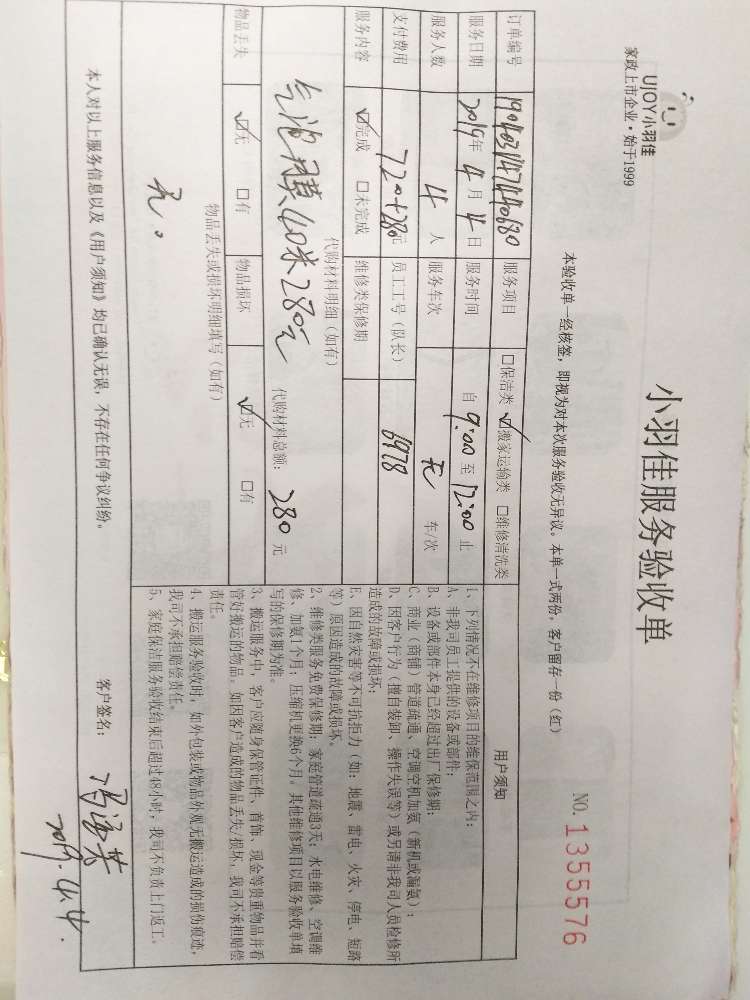 UJOY小羽佳
家政上市企业·始于1999
小羽佳服务验收单
NO.1355576
本验收单一经核签，即视为对本次服务验收无异议。本单一式两份，客户留存一份（红）
订单编号 190403147440680 服务项目 □保洁类 ☑搬家运输类 □维修清洗类
服务日期 2019年4月4日 服务时间 自9:00至12:00止
服务人数 4人 服务车次 无 车/次
支付费用 720+280元 员工工号（队长） 6978
服务内容 ☑完成 □未完成 维修类保修期
代购材料明细（如有）
气泡膜40米280元 代购材料总额：280元
物品丢失 ☑无 □有 物品损坏 ☑无 □有
物品丢失或损坏明细填写（如有）
无。
用户须知
1、下列情况不在维修项目的维保范围之内：
A、非我司员工提供的设备或部件；
B、设备或部件本身已经超过出厂保修期；
C、商业（商铺）管道疏通、空调空机加氨（新机或漏氨）；
D、因客户行为（擅自装卸、操作失误等）或另请非我司人员检修所
造成的故障或损坏；
E、因自然灾害等不可抗拒力（如：地震、雷电、火灾、停电、短路
等）原因造成的故障或损坏。
2、维修类服务免费保修期：家庭管道疏通3天；水电维修、空调维
修、加氨1个月；压缩机更换6个月。其他维修项目以服务验收单填
写的保修期为准。
3、搬运服务中，客户应随身保管证件、首饰、现金等贵重物品并看
管好搬运的物品。如因客户造成的物品丢失/损坏，我司不承担赔偿
责任。
4、搬运服务验收时，如外包装或物品外观无搬运造成的损伤痕迹，
我司不承担赔偿责任。
5、家庭保洁服务验收结束后超过48小时，我司不负责上门返工。
本人对以上服务信息以及《用户须知》均已确认无误，不存在任何争议纠纷。 客户签名：
2019.4.4.